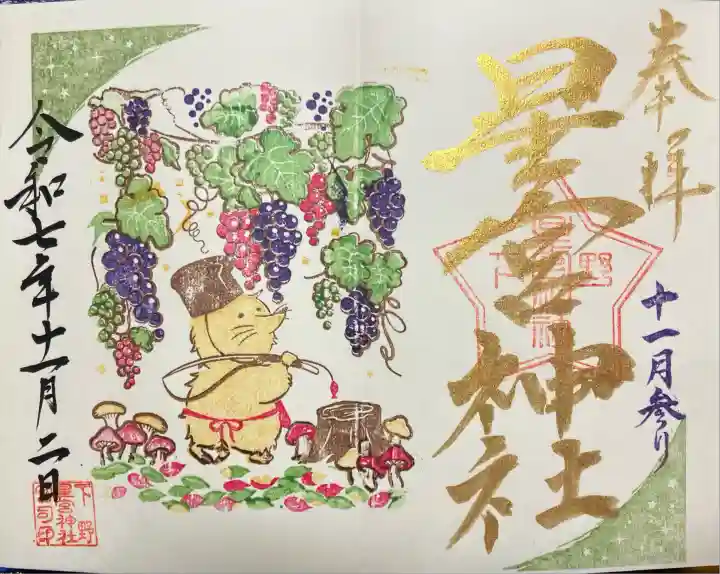 奉拝
星宮神社
十一月参り
令和七年十一月二日
下野
星宮神社
宮司印